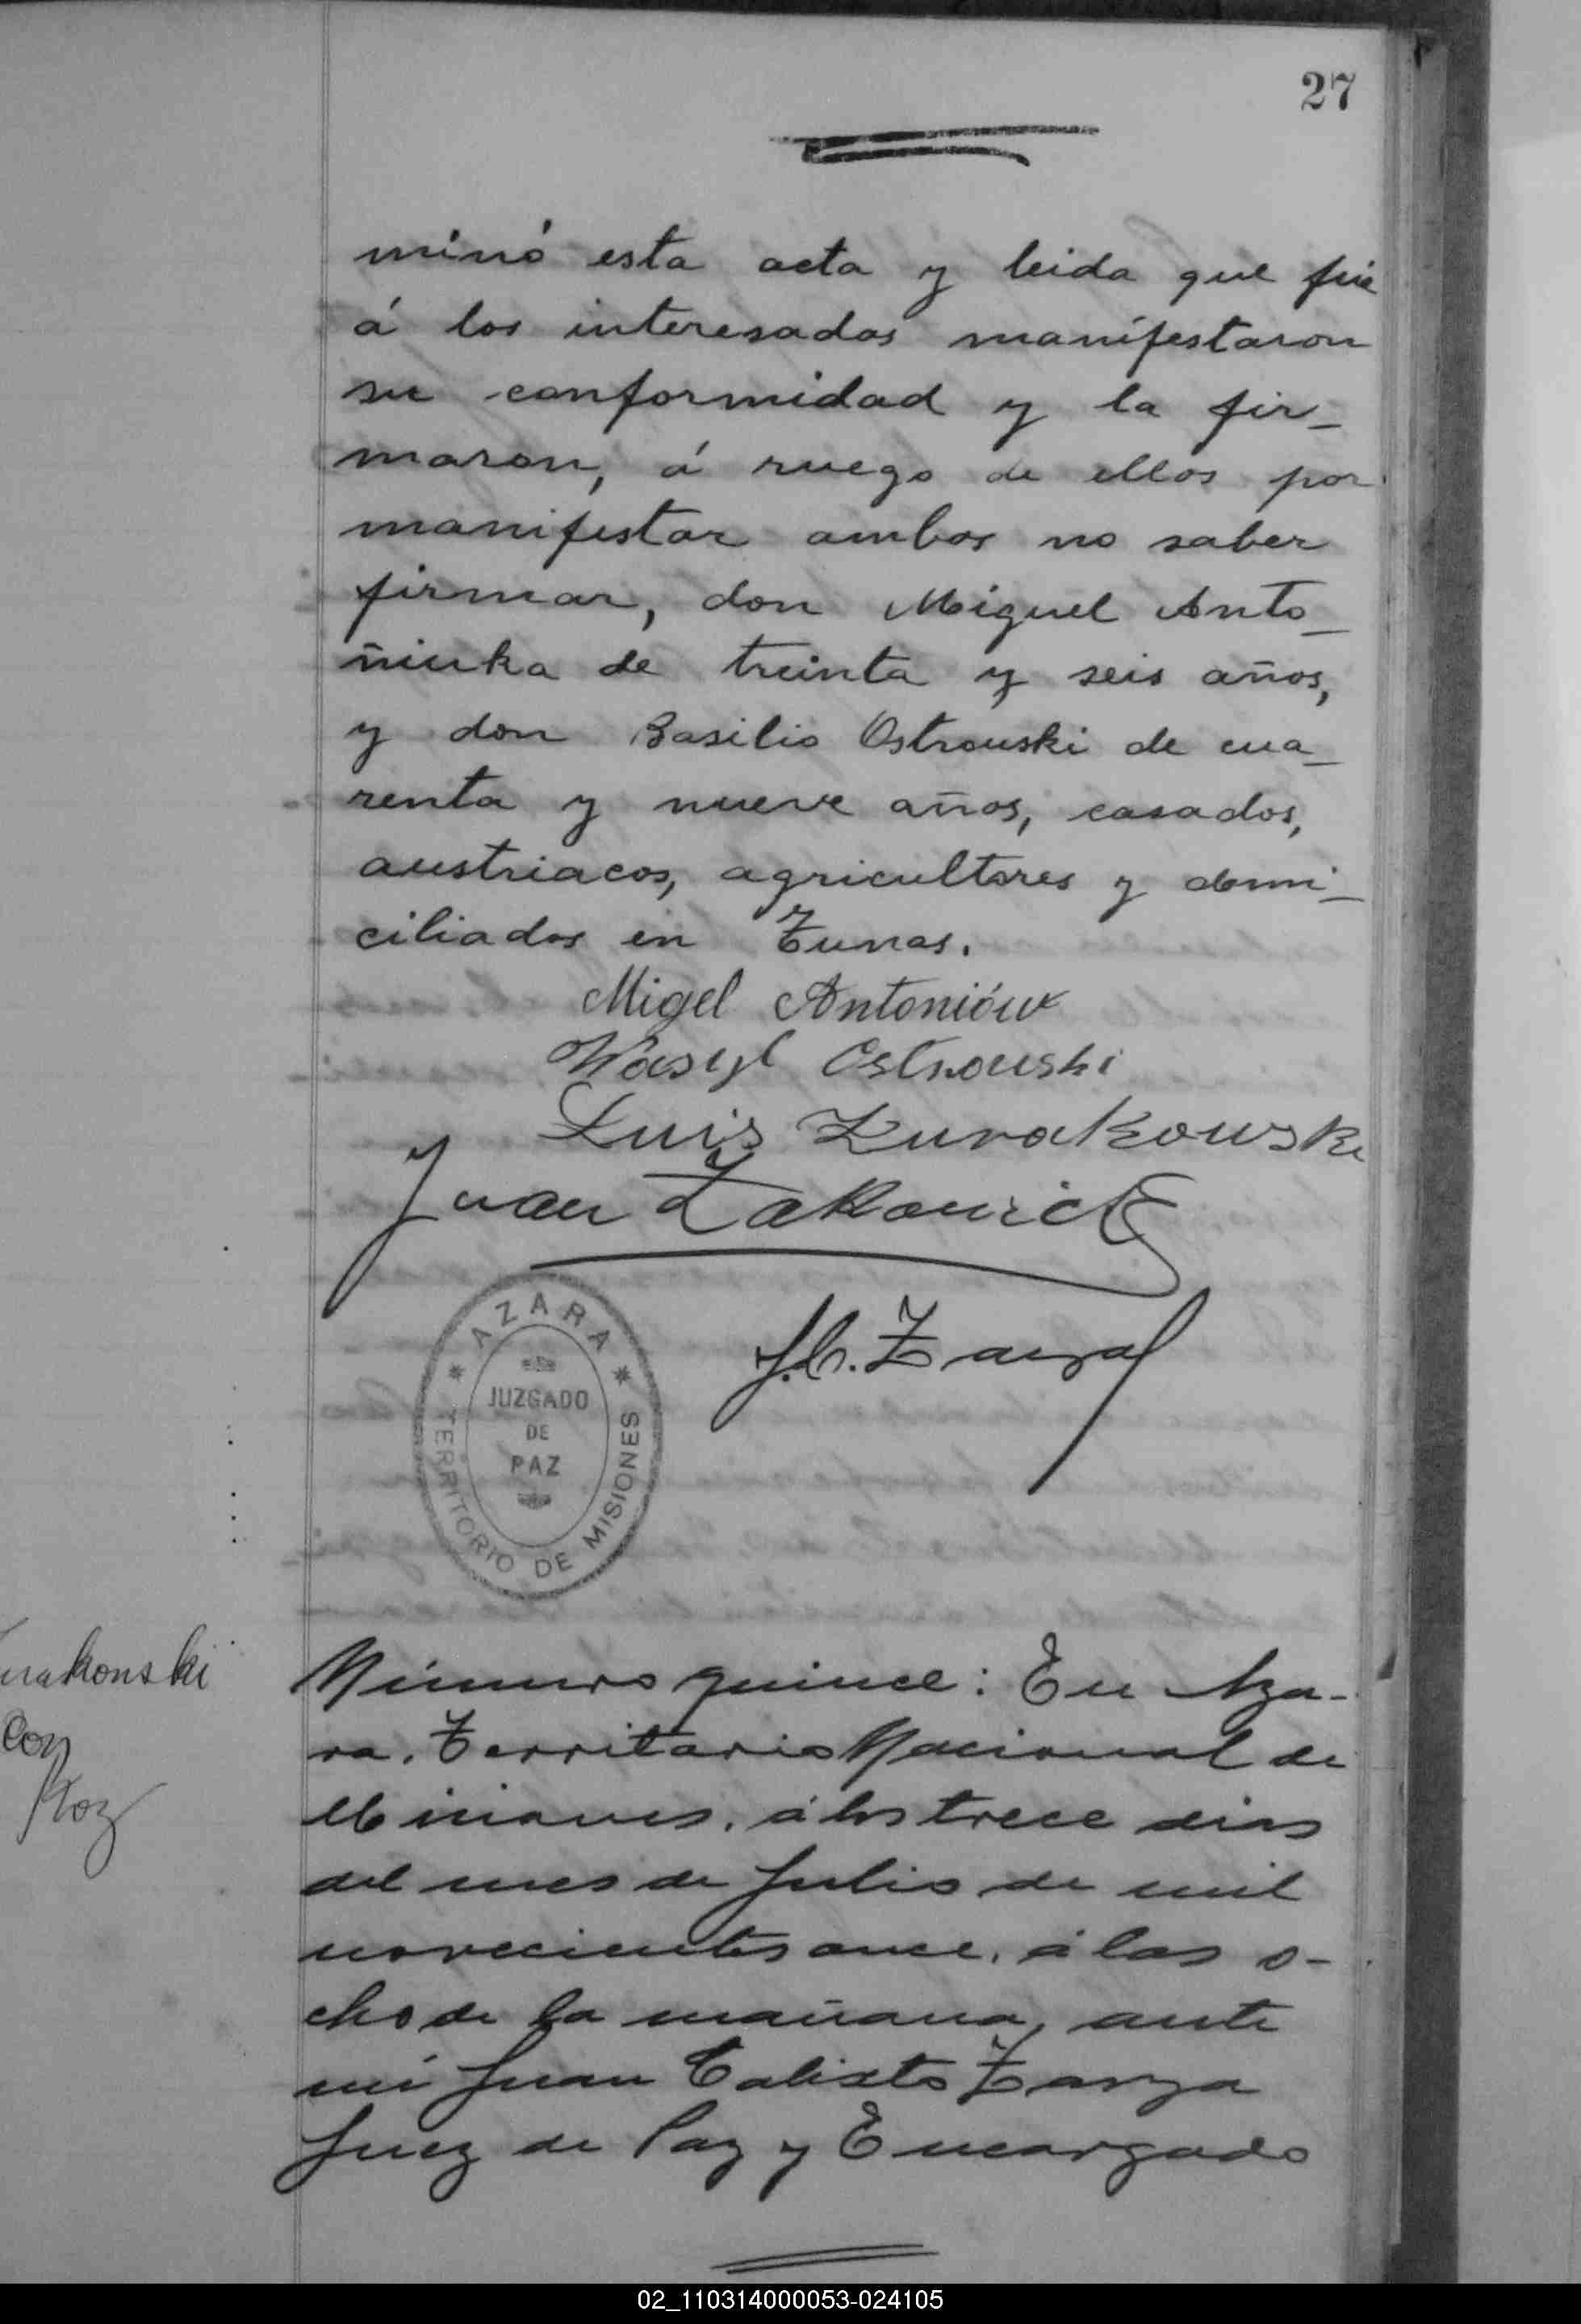 27
minó esta acta y leida que fué
á los interesados manifestaron
su conformidad y la fir_
maron, á ruego de ellos por
manifestar ambos no saber
firmar, don Miguel Anto_
ñiuka de treinta y seis años,
y don Basilio Ostrouski de cua_
renta y nueve años, casados,
austriacos, agricultores y domi_
ciliados en Tunas.
Migel Antoniów
Wasyl Ostrouski
Luis Zurakowski
Juan
J.C. Zarza
AZARA
JUZGADO
DE
PAZ
TERRITORIO DE MISIONES
urakonski
con
Koz
Número quince: En Aza-
ra, Territorio Nacional de
Misiones, á los trece dias
del mes de Julio de mil
novecientos once, á las o-
cho de la mañana, ante
mi Juan Calixto Zarza
Juez de Paz y Encargado
02_110314000053-024105